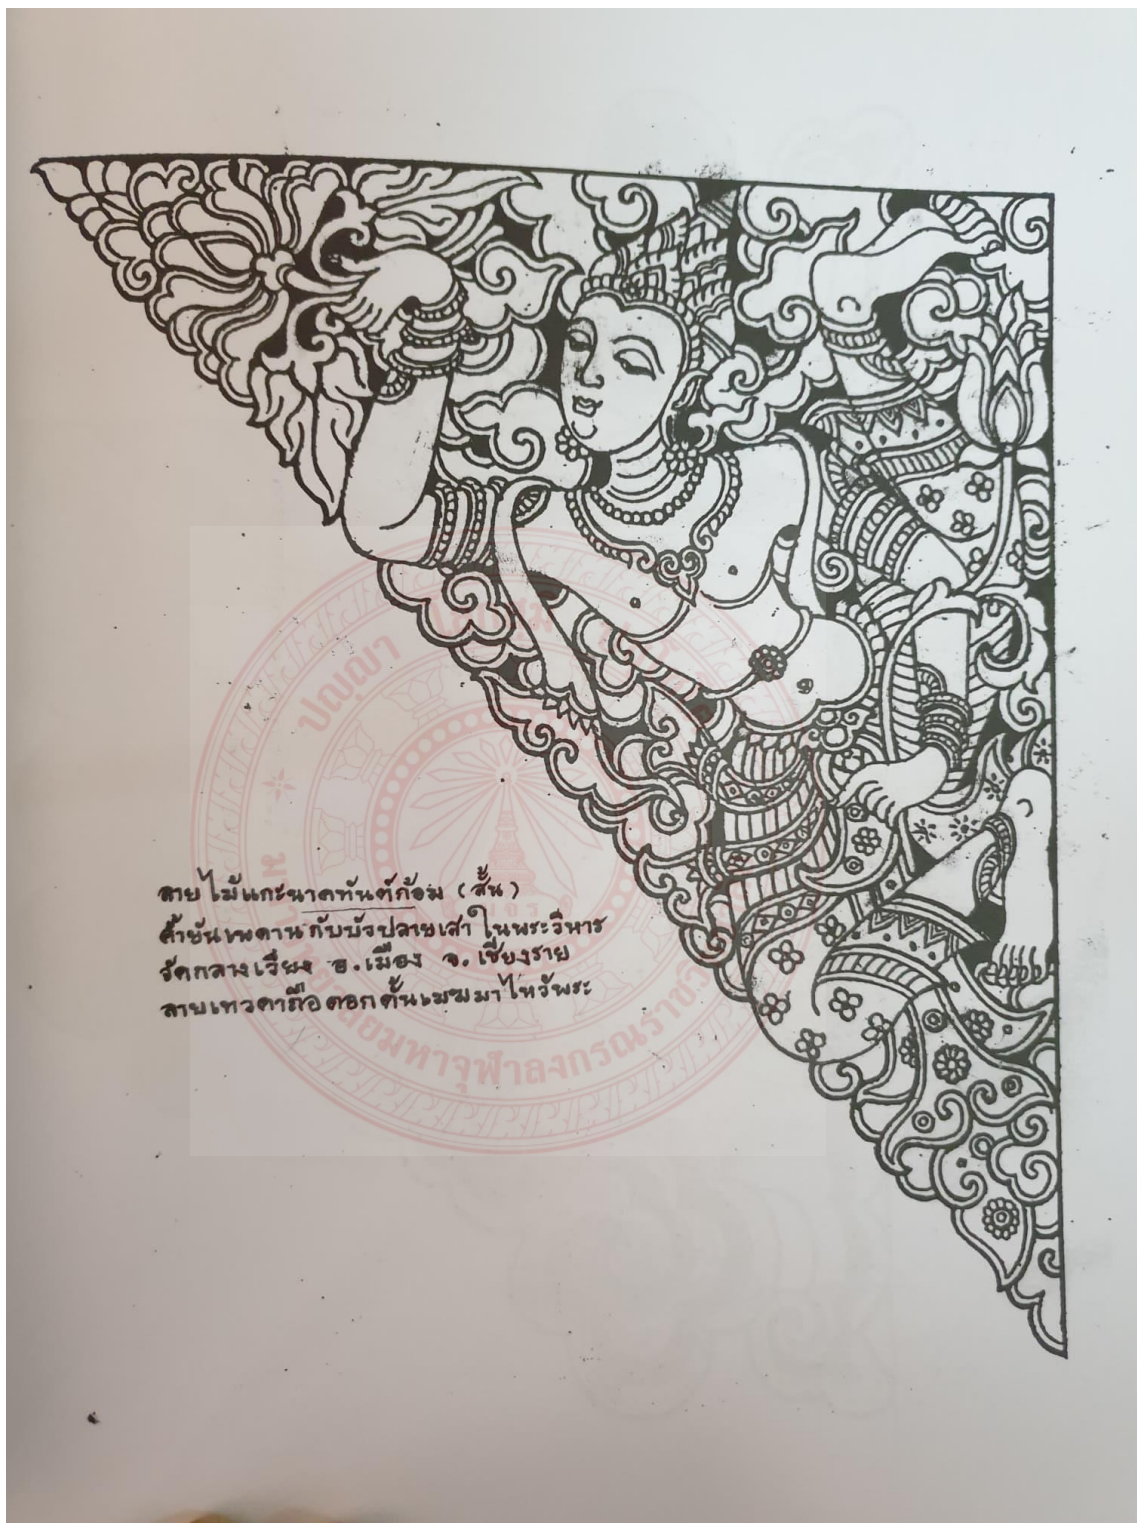 ลายไม้แกะนาคทันต์ก้อม (สั้น)
ค้ำยันเพดานกับบัวปลายเสาในพระวิหาร
วัดกลางเวียง อ.เมือง จ.เชียงราย
ลายเทวดาถือดอกดั้นเมฆมาไหว้พระ
ปญฺญา โลกสฺมิ
มหาจุฬาลงกรณราชวิ